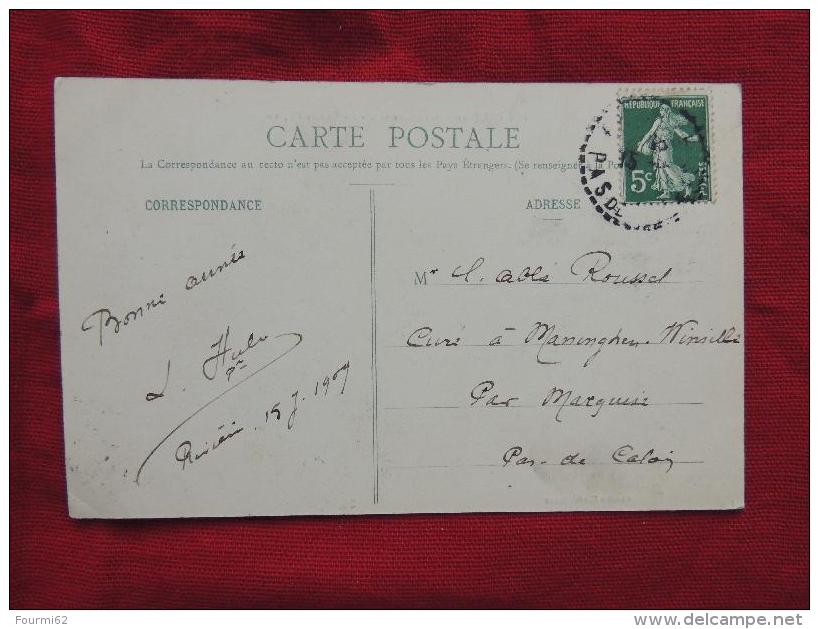 CARTE POSTALE
La Correspondance au recto n'est pas acceptée par tous les Pays Étrangers. (Se renseigner à la Po
CORRESPONDANCE
ADRESSE
RÉPUBLIQUE FRANÇAISE
5c
POSTES
PAS DE
15
Bonne année
L. Hulo
15 J. 1909
Mr l'abbé Roussel
Curé à Maninghen-Wimille
Par Marquise
Pas-de Calais
Fourmi62
delcampe.net